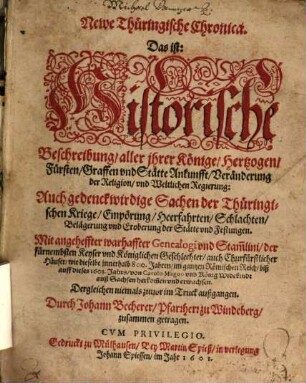 Newe Thüringische Chronica.
Das ist:
Historische
Beschreibung/ aller jhrer Könige/ Hertzogen/
Fürsten/ Graffen vnd Stätte Ankunfft/ Veränderung
der Religion/ vnd Weltlichen Regierung:
Auch gedenckwirdige Sachen der Thüringi-
schen Kriege/ Empörung/ Heerfahrten/ Schlachten/
Belägerung vnd Eroberung der Stätte vnd Festungen.
Mit angeheffter warhaffter Genealogi vnd Stam̃lini/ der
fürnembsten Keyser vnd Königlichen Geschlechter/ auch Churfürstlicher
Häuser/ wie dieselbe innerhalb 800. Jahren/ im gantzen Römischen Reich/ biß
auff dieses 1601. Jahr/ von Carolo Magno vnd König Wedekindt
auß Sachsen herkommen vnd erwachsen.
Dergleichen niemals zuvor im Truck außgangen.
Durch Johann Becherer/ Pfarrherr zu Windeberg/
zusammen getragen.
CVM PRIVILEGIO.
Gedruckt zu Mülhausen/ Bey Martin Spieß/ in verlegung
Johann Spiessen/ im Jahr 1601.